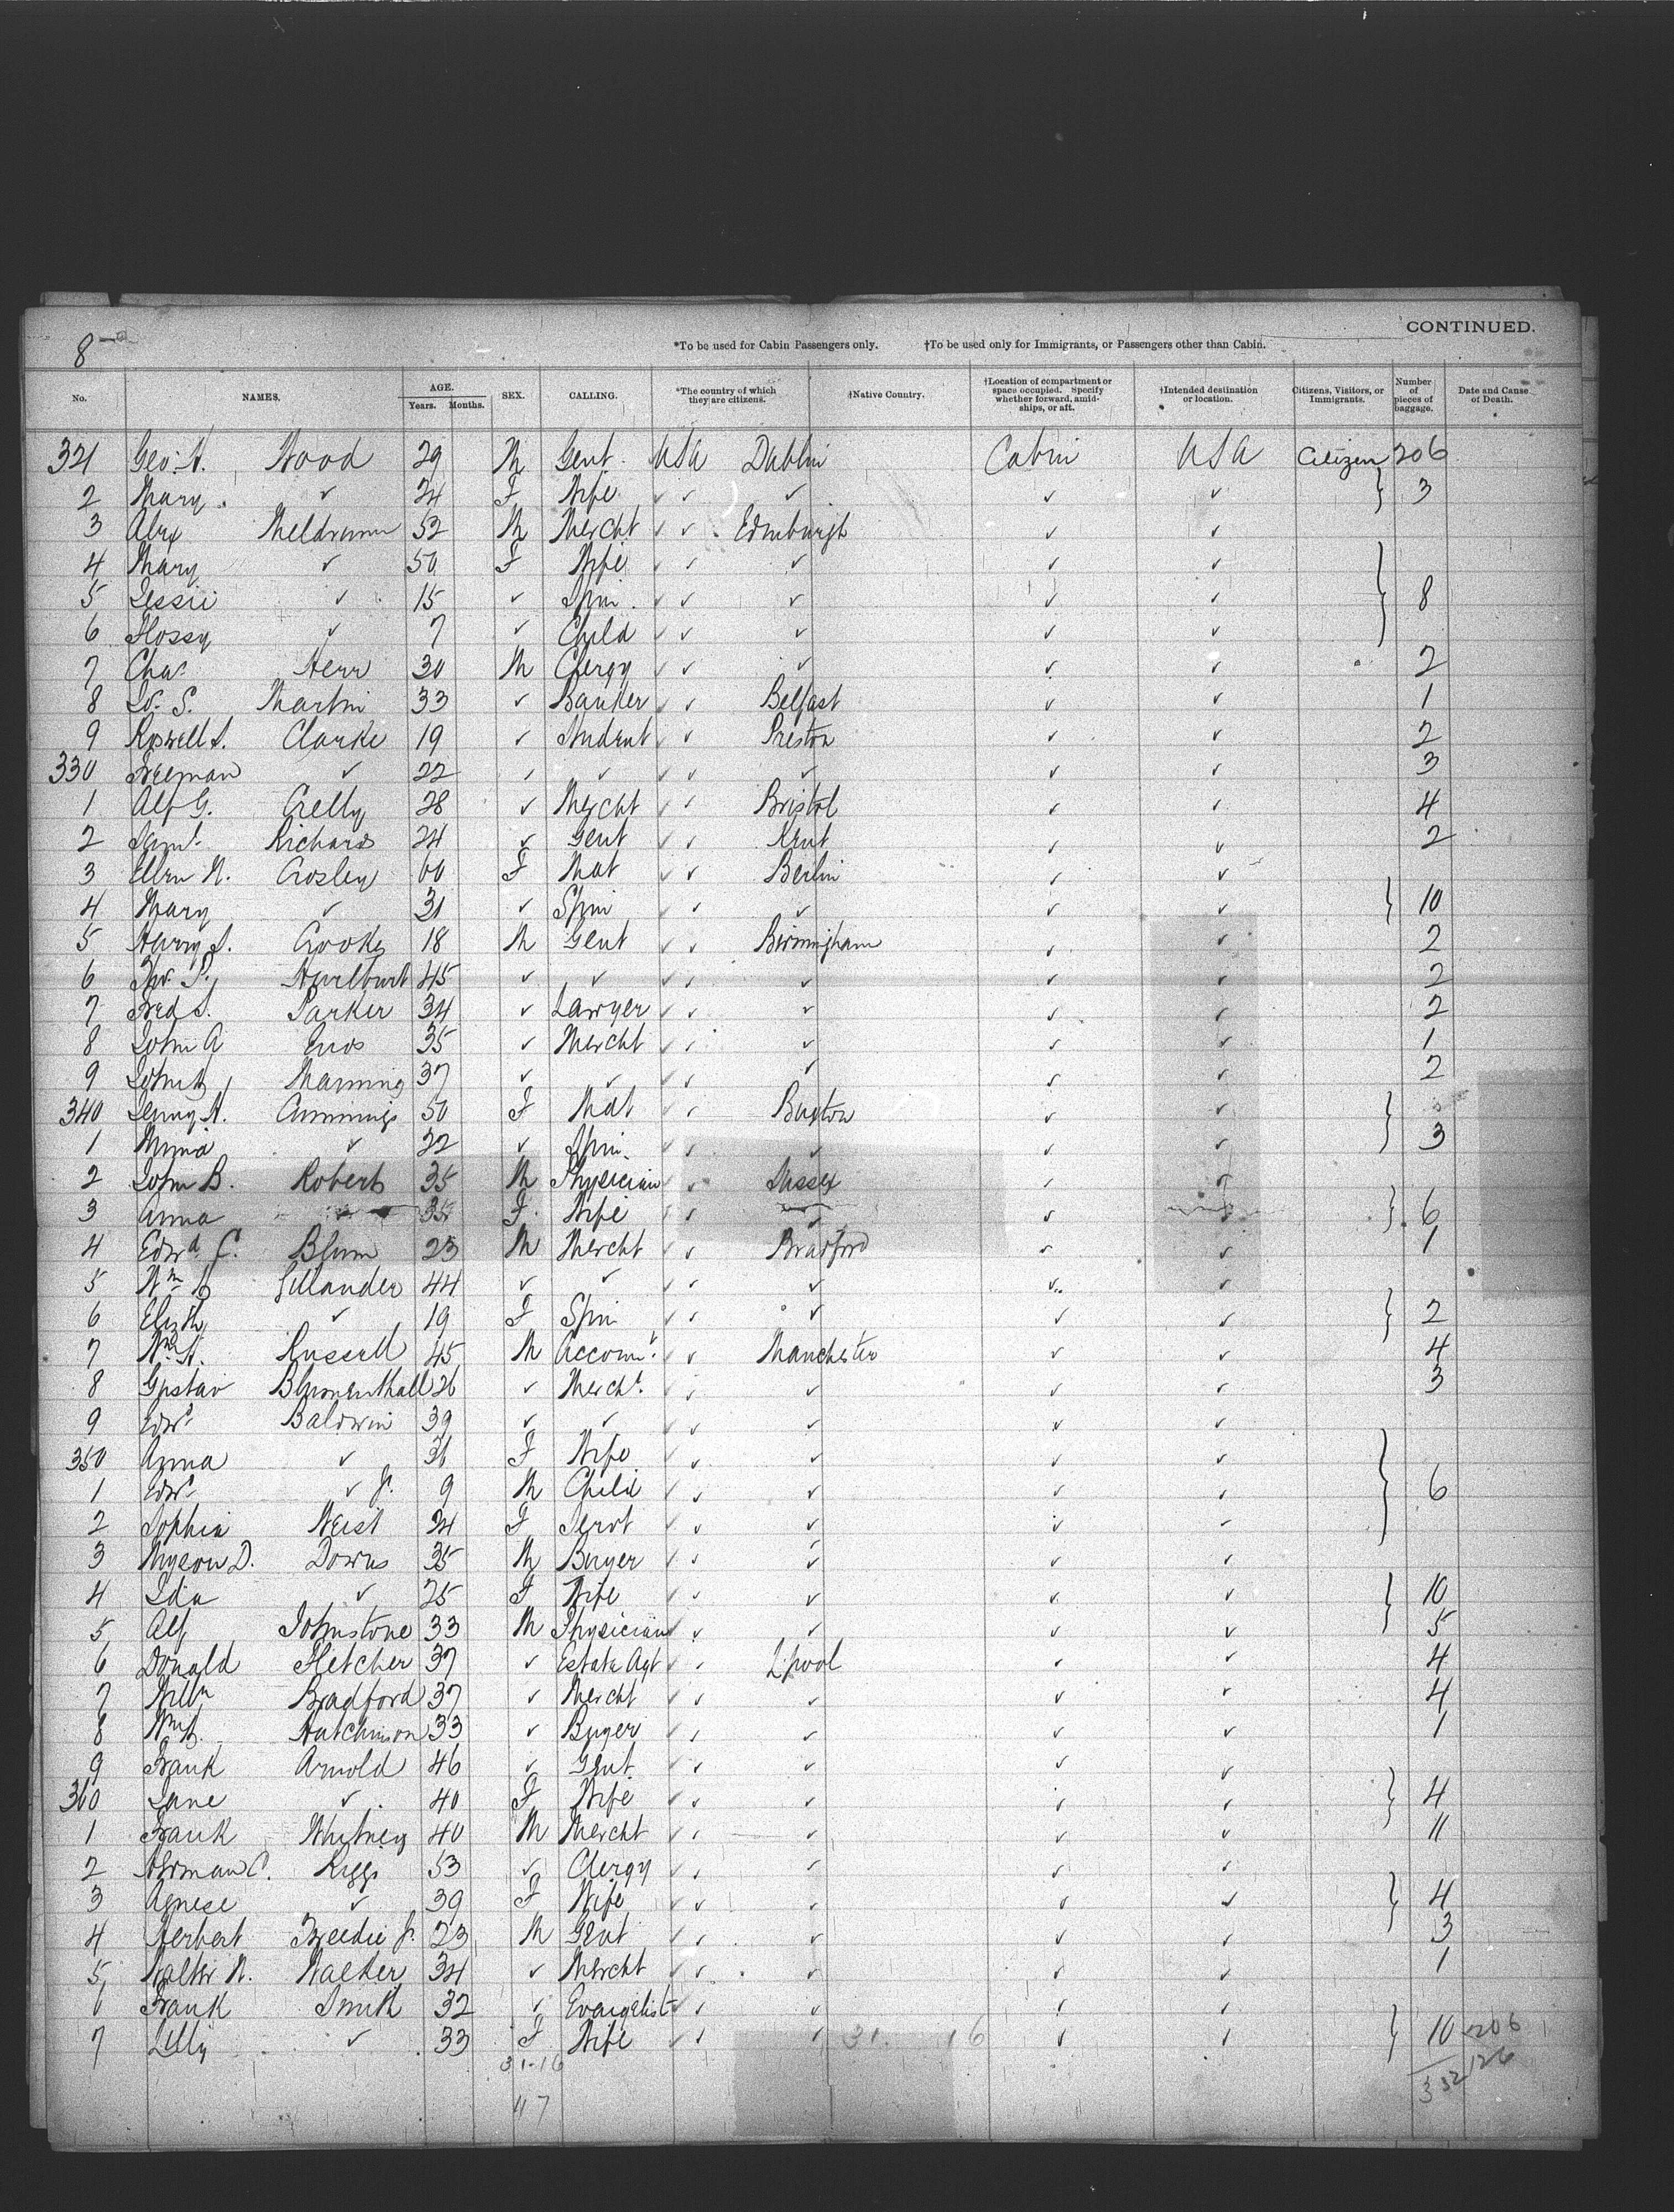 8
CONTINUED.
*To be used for Cabin Passengers only. †To be used only for Immigrants, or Passengers other than Cabin.
No. NAMES. AGE. Years. Months. SEX. CALLING. *The country of which they are citizens. †Native Country. †Location of compartment or space occupied. Specify whether forward, amidships, or aft. †Intended destination or location. Citizens, Visitors, or Immigrants. Number of pieces of baggage. Date and Cause of Death.
321 Geo. Wood 29 M Gent USA Dublin Cabin USA Citizen 206
2 Mary ✓ 24 F Wife ✓ ✓ ✓ ✓ ✓ } 3
3 Alex Meldrum 52 M Mercht ✓ ✓ Edinburgh ✓ ✓
4 Mary ✓ 50 F Wife ✓ ✓ ✓ ✓ ✓
5 Jessie ✓ 15 ✓ Spin. ✓ ✓ ✓ ✓ ✓ } 8
6 Flossy ✓ 7 ✓ Child ✓ ✓ ✓ ✓ ✓
7 Chas 30 M Clergy ✓ ✓ ✓ ✓ ✓ 2
8 S. Martin 33 ✓ Banker ✓ ✓ Belfast ✓ ✓ 1
9 Roswell S. Clarke 19 ✓ Student ✓ ✓ Preston ✓ ✓ 2
330 Freeman ✓ 22 ✓ ✓ ✓ ✓ ✓ ✓ ✓ 3
1 Alf G. 28 ✓ Mercht ✓ ✓ Bristol ✓ ✓ 4
2 Saml Richards 24 ✓ Gent ✓ ✓ Kent ✓ ✓ 2
3 Ellen Crosley 60 F Mat ✓ ✓ Berlin ✓ ✓
4 Mary ✓ 31 ✓ Spin ✓ ✓ ✓ ✓ ✓ } 10
5 Harry S. Crooks 18 M Gent ✓ ✓ Birmingham ✓ ✓ 2
6 Hurlburt 45 ✓ ✓ ✓ ✓ ✓ ✓ ✓ 2
7 Fred S. Parker 34 ✓ Lawyer ✓ ✓ ✓ ✓ ✓ 2
8 John A Enos 35 ✓ Mercht ✓ ✓ ✓ ✓ ✓ 1
9 John Manning 37 ✓ ✓ ✓ ✓ ✓ ✓ ✓ 2
340 Jenny H. Cummings 50 F Mat ✓ ✓ Buxton ✓ ✓
1 Minnia ✓ 22 ✓ Spin. ✓ ✓ ✓ ✓ ✓ } 3
2 John B. Roberts 35 M Physician ✓ ✓ Sussex ✓ ✓
3 Anna ✓ 35 F Wife ✓ ✓ ✓ ✓ ✓ } 6
4 Edwd C. Blum 23 M Mercht ✓ ✓ Bradford ✓ ✓ 1
5 Wm Gillander 44 ✓ ✓ ✓ ✓ ✓ ✓ ✓
6 Elizth ✓ 19 F Spin ✓ ✓ ✓ ✓ } 2
7 Wm H. Russell 45 M Account ✓ ✓ Manchester ✓ ✓ 4
8 Gustav Blumenthall 26 ✓ Mercht. ✓ ✓ ✓ ✓ ✓ 3
9 Edwd Baldwin 39 ✓ ✓ ✓ ✓ ✓ ✓ ✓
350 Anna ✓ 31 F Wife ✓ ✓ ✓ ✓ ✓
1 Edwd ✓ Jr. 9 M Child ✓ ✓ ✓ ✓ ✓ } 6
2 Sophia Weist 24 F Servt ✓ ✓ ✓ ✓ ✓
3 Myron D. Downs 35 M Buyer ✓ ✓ ✓ ✓ ✓
4 Ida ✓ 25 F Wife ✓ ✓ ✓ ✓ ✓ } 10
5 Alf Johnstone 33 M Physician ✓ ✓ ✓ ✓ ✓ 5
6 Donald Fletcher 37 ✓ Estate Agt ✓ ✓ L'pool ✓ ✓ 4
7 Willm Bradford 37 ✓ Mercht ✓ ✓ ✓ ✓ ✓ 4
8 Wm Hutchinson 33 ✓ Buyer ✓ ✓ ✓ ✓ ✓ 1
9 Frank Arnold 46 ✓ Gent ✓ ✓ ✓ ✓ ✓
360 Jane ✓ 40 F Wife ✓ ✓ ✓ ✓ ✓ } 4
1 Frank Whitney 40 M Mercht ✓ ✓ ✓ ✓ ✓ 11
2 Herman C. Riggs 53 ✓ Clergy ✓ ✓ ✓ ✓ ✓
3 Agnese ✓ 39 F Wife ✓ ✓ ✓ ✓ ✓ } 4
4 Herbert Jr. 23 M Gent ✓ ✓ ✓ ✓ ✓ 3
5 Walter W. Walker 34 ✓ Mercht ✓ ✓ ✓ ✓ ✓ 1
6 Frank Smith 32 ✓ Evangelist ✓ ✓ ✓ ✓ ✓
7 Lilly ✓ 33 F Wife ✓ ✓ ✓ 31. 16 ✓ ✓ } 10 206
31-16 126
47 332